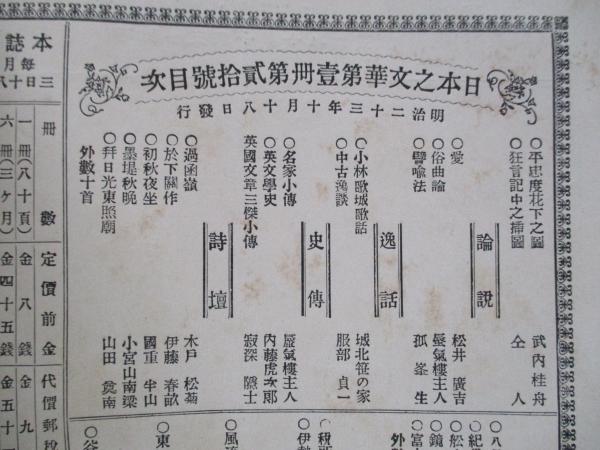 日本之文華第壹冊第貳拾號目次
明治二十三年十月十八日發行
○平忠度花下之圖
武內桂舟
○狂言記中之插圖
仝人
論說
○愛
松井廣吉
○俗曲論
蜃氣樓主人
○譬喩法
孤峯生
逸話
○小林歌城歌話
城北笹の家
○中古逸談
服部貞一
史傳
○名家小傳
蜃氣樓主人
○英文學史
內藤虎次郎
英國文章三傑小傳
寂深隱士
詩壇
○過函嶺
木戶松菊
○於下關作
伊藤春畝
○初秋夜坐
國重半山
○墨堤秋晚
小宮山南梁
○拜日光東照廟
山田奠南
外數十首
本誌
每月
三日十八
冊數
定價前金
代價郵稅
一冊(八十頁)
金八錢
金九
六冊(三ヶ月)
金四十五錢
金五十